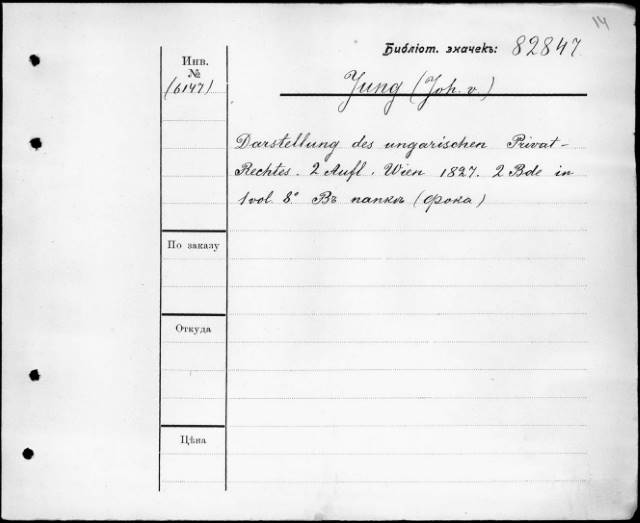 14
Библіот. значекъ: 82847
Инв.
№
(6147)
Jung (Joh. v.)
Darstellung des ungarischen Privat-
Rechtes. 2 Aufl. Wien 1827. 2 Bde in
1 vol. 8° Въ папкѣ (Фока)
По заказу
Откуда
Цѣна